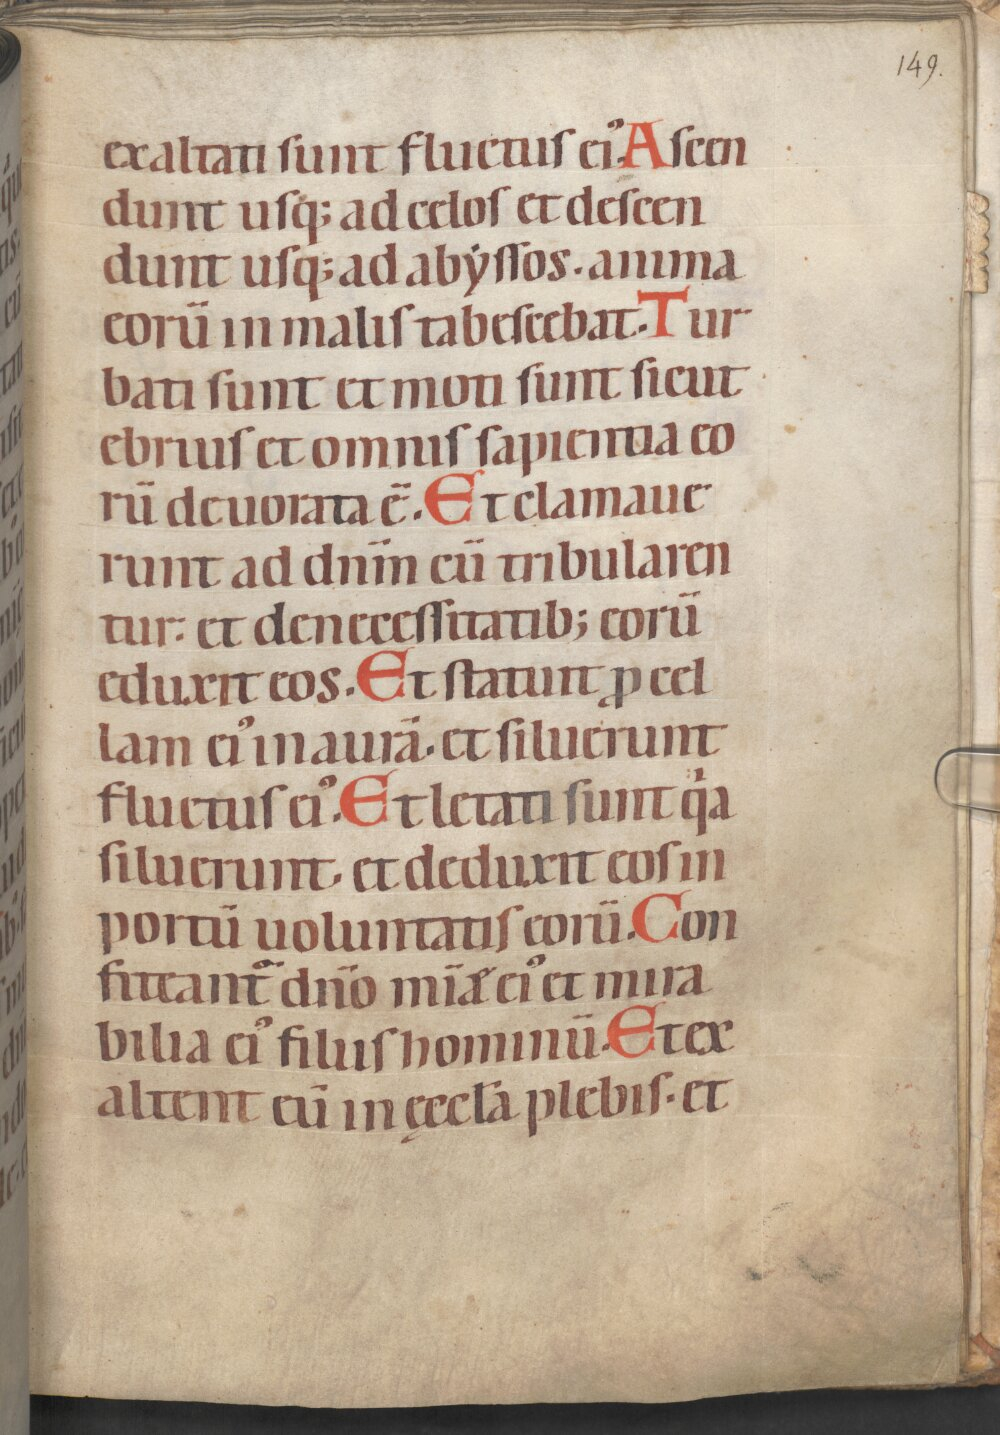 149.
exaltati sunt fluctus ei᾽. Ascen
dunt usq; ad celos et descen
dunt usq; ad abẏssos. anima
eorū in malis tabescebat. Tur
bati sunt et moti sunt sicut
ebrius et omnis sapientia eo
rū deuorata ē. Et clamaue
runt ad dn̄m cū tribularen
tur: et denecessitatib; eorū
eduxit eos. Et statuit ꝓcel
lam ei᾽ in aurā. et siluerunt
fluctus ei᾽. Et letati sunt qͥa
siluerunt. et deduxit eos in
portū uoluntatis eorū. Con
fiteant᷑ dn̄o mīæ ei᾽ et mira
bilia ei᾽ filiis hominū. Et ex
altent eū in ęccłā plebis. et